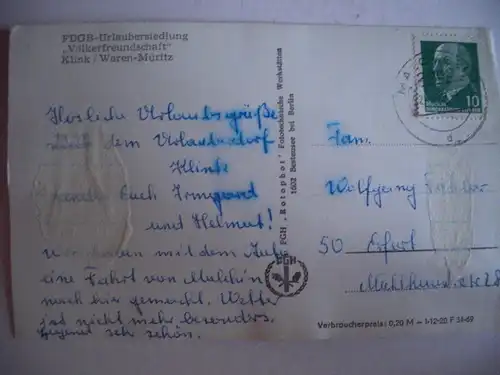 FDGB-Urlaubersiedlung
„Völkerfreundschaft"
Klink / Waren-Müritz
Herzliche Urlaubsgrüße
dem Urlauberdorf
Klink
Euch Irmgard
und Helmut!
Wir haben mit dem Auto
eine Fahrt von Malchin
nach hier gemacht. Wetter
ist nicht mehr besonders.
sehr schön.
PGH „Rotophot" Fototechnische Werkstätten
1602 Bestensee bei Berlin
PGH
10
Fam.
Wolfgang
50 Erfurt
Verbraucherpreis: 0,20 M – 1-12-20 F 34-69